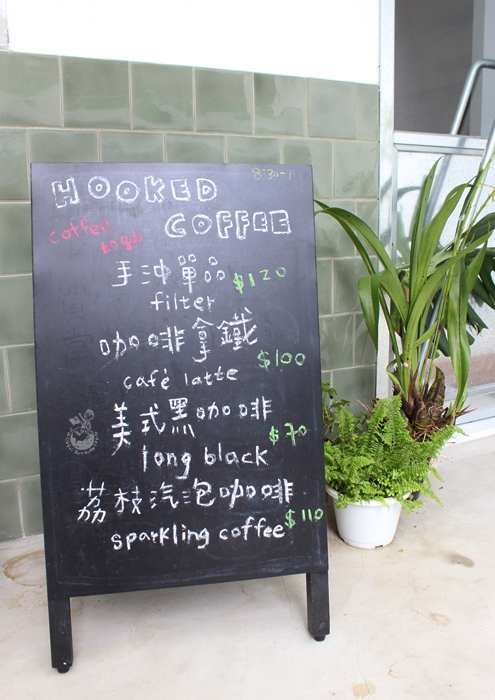 8:30-
HOOKED
COFFEE
coffee
to go
手沖單品 $120
filter
咖啡拿鐵
$100
café latte
美式黑咖啡
$70
long black
荔枝汽泡咖啡
$110
sparkling coffee